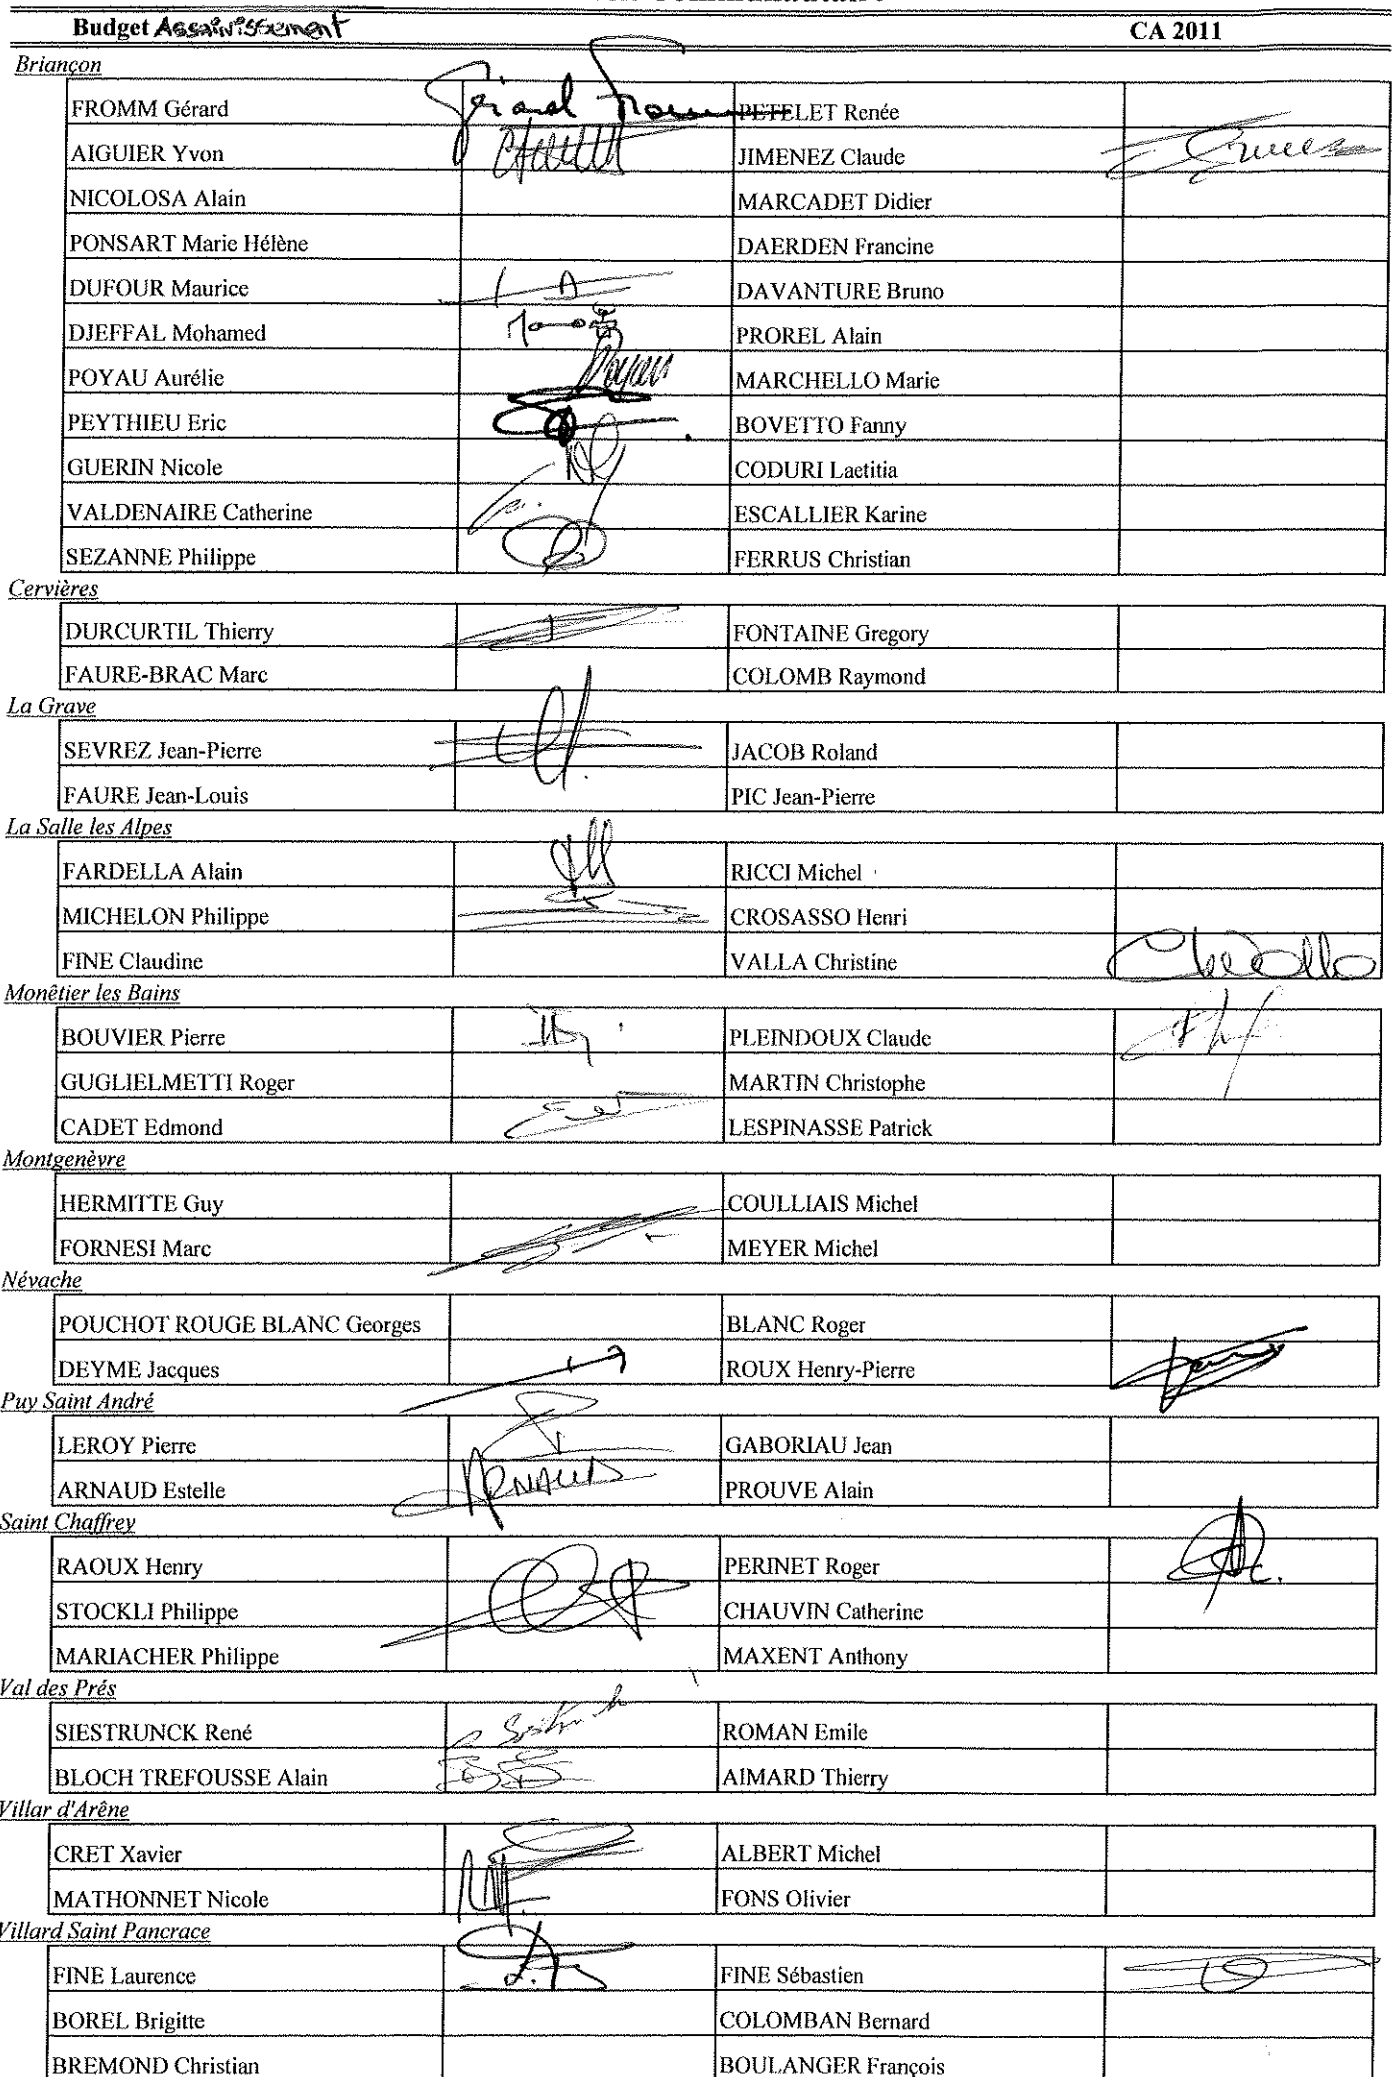 Budget Assainissement CA 2011
Briançon
FROMM Gérard Gérard Fromm PETELET Renée
AIGUIER Yvon JIMENEZ Claude
NICOLOSA Alain MARCADET Didier
PONSART Marie Hélène DAERDEN Francine
DUFOUR Maurice DAVANTURE Bruno
DJEFFAL Mohamed PROREL Alain
POYAU Aurélie Poyau MARCHELLO Marie
PEYTHIEU Eric BOVETTO Fanny
GUERIN Nicole CODURI Laetitia
VALDENAIRE Catherine ESCALLIER Karine
SEZANNE Philippe FERRUS Christian
Cervières
DURCURTIL Thierry FONTAINE Gregory
FAURE-BRAC Marc COLOMB Raymond
La Grave
SEVREZ Jean-Pierre JACOB Roland
FAURE Jean-Louis PIC Jean-Pierre
La Salle les Alpes
FARDELLA Alain RICCI Michel
MICHELON Philippe CROSASSO Henri
FINE Claudine VALLA Christine
Monêtier les Bains
BOUVIER Pierre PLEINDOUX Claude
GUGLIELMETTI Roger MARTIN Christophe
CADET Edmond LESPINASSE Patrick
Montgenèvre
HERMITTE Guy COULLIAIS Michel
FORNESI Marc MEYER Michel
Névache
POUCHOT ROUGE BLANC Georges BLANC Roger
DEYME Jacques ROUX Henry-Pierre
Puy Saint André
LEROY Pierre GABORIAU Jean
ARNAUD Estelle ARNAUD PROUVE Alain
Saint Chaffrey
RAOUX Henry PERINET Roger
STOCKLI Philippe CHAUVIN Catherine
MARIACHER Philippe MAXENT Anthony
Val des Prés
SIESTRUNCK René ROMAN Emile
BLOCH TREFOUSSE Alain AIMARD Thierry
Villar d'Arêne
CRET Xavier ALBERT Michel
MATHONNET Nicole FONS Olivier
Villard Saint Pancrace
FINE Laurence FINE Sébastien
BOREL Brigitte COLOMBAN Bernard
BREMOND Christian BOULANGER François